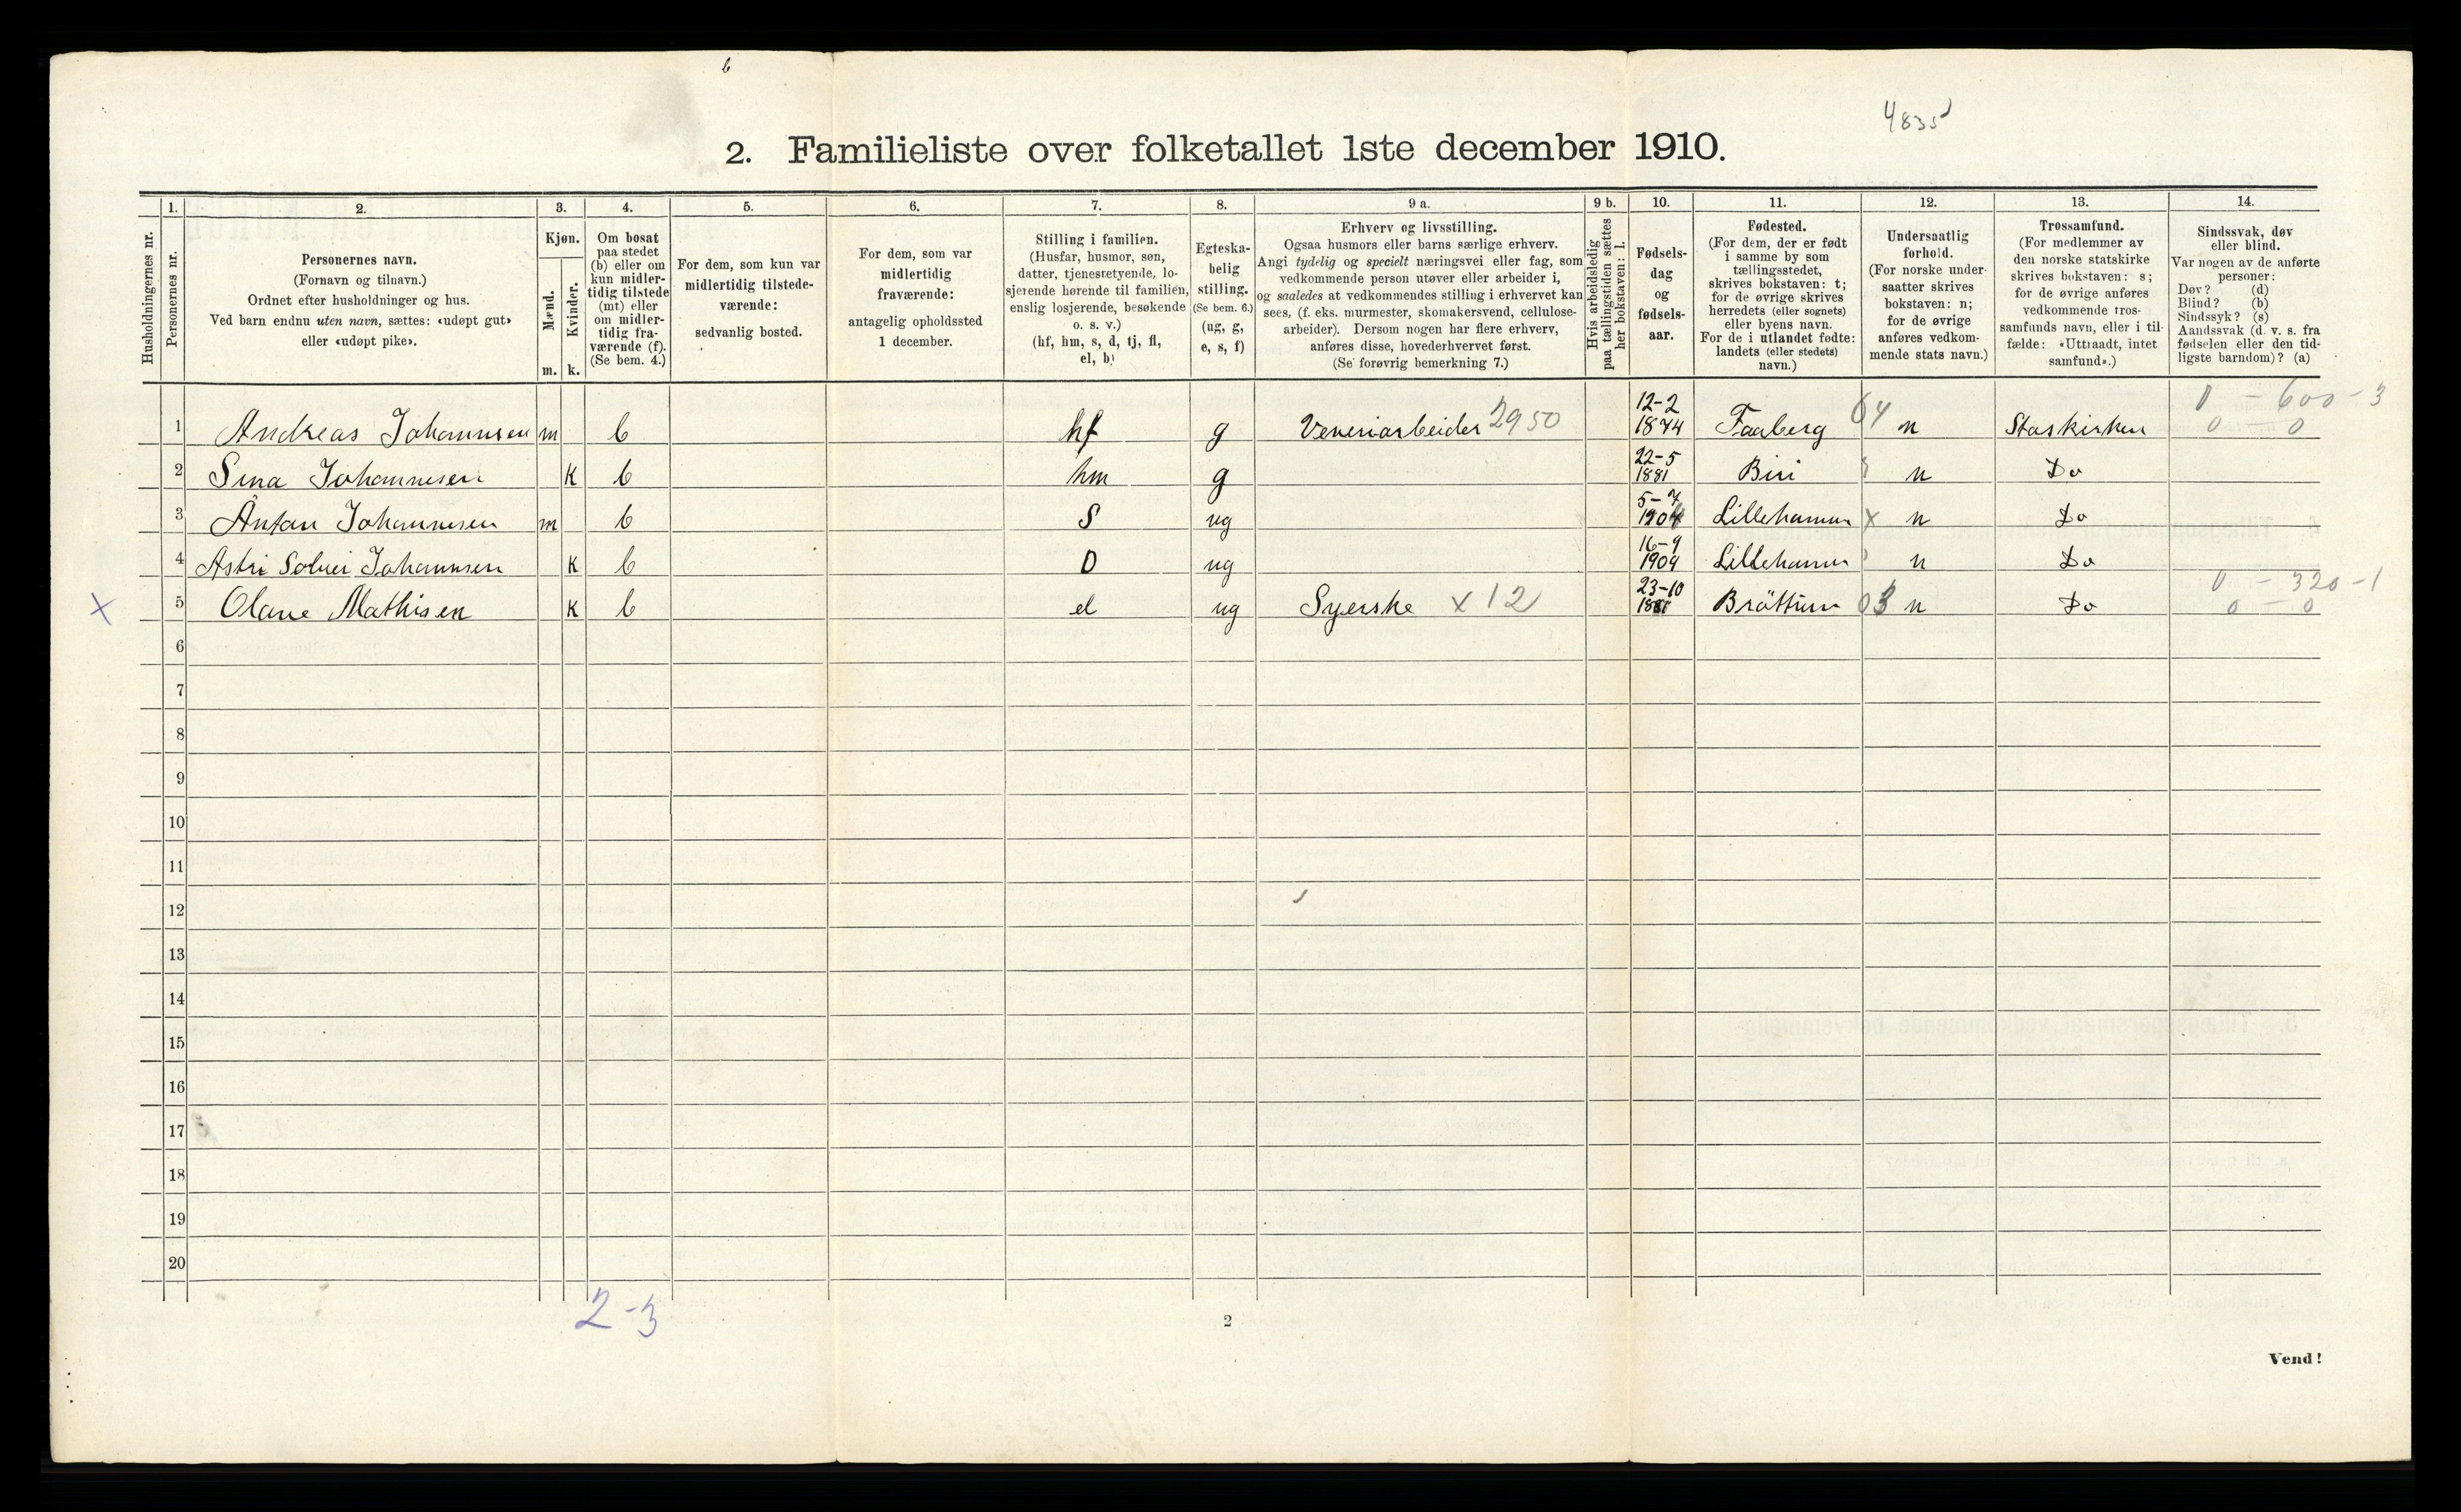 6
4835
2. Familieliste over folketallet 1ste december 1910.
Husholdningernes nr.
1.
Personernes nr.
2.
Personernes navn.
(Fornavn og tilnavn.)
Ordnet efter husholdninger og hus.
Ved barn endnu uten navn, sættes: «udøpt gut»
eller «udøpt pike».
3.
Kjøn.
Mænd.
Kvinder.
m. k.
4.
Om bosat
paa stedet
(b) eller om
kun midler-
tidig tilstede
(mt) eller
om midler-
tidig fra-
værende (f).
(Se bem. 4.)
5.
For dem, som kun var
midlertidig tilstede-
værende:
sedvanlig bosted.
6.
For dem, som var
midlertidig
fraværende:
antagelig opholdssted
1 december.
7.
Stilling i familien.
(Husfar, husmor, søn,
datter, tjenestetyende, lo-
sjerende hørende til familien,
enslig losjerende, besøkende
o. s. v.)
(hf, hm, s, d, tj, fl,
el, b)
8.
Egteska-
belig
stilling.
(Se bem. 6.)
(ug, g,
e, s, f)
9 a.
Erhverv og livsstilling.
Ogsaa husmors eller barns særlige erhverv.
Angi tydelig og specielt næringsvei eller fag, som
vedkommende person utøver eller arbeider i,
og saaledes at vedkommendes stilling i erhvervet kan
sees, (f. eks. murmester, skomakersvend, cellulose-
arbeider). Dersom nogen har flere erhverv,
anføres disse, hovederhvervet først.
(Se forøvrig bemerkning 7.)
9 b.
Hvis arbeidsledig
paa tællingstiden sættes
her bokstaven: l.
10.
Fødsels-
dag
og
fødsels-
aar.
11.
Fødested.
(For dem, der er født
i samme by som
tællingsstedet,
skrives bokstaven: t;
for de øvrige skrives
herredets (eller sognets)
eller byens navn.
For de i utlandet fødte:
landets (eller stedets)
navn.)
12.
Undersaatlig
forhold.
(For norske under-
saatter skrives
bokstaven: n;
for de øvrige
anføres vedkom-
mende stats navn.)
13.
Trossamfund.
(For medlemmer av
den norske statskirke
skrives bokstaven: s;
for de øvrige anføres
vedkommende tros-
samfunds navn, eller i til-
fælde: «Uttraadt, intet
samfund».)
14.
Sindssvak, døv
eller blind.
Var nogen av de anførte
personer:
Døv? (d)
Blind? (b)
Sindssyk? (s)
Aandssvak (d. v. s. fra
fødselen eller den tid-
ligste barndom)? (a)
12-2 0 - 600 - 3
1 Andreas Johannesen m b hf g Veveriarbeider 2950 1874 Faaberg 64 n Staskirken 0 - 0
22-5
2 Sina Johannesen K b hm g 1881 Biri n Do
5-7
3 Antan Johannesen m b S ug 1904 Lillehamm x n Do
16-9
4 Astri Solvei Johannesen K b D ug 1909 Lillehamm n Do
23-10 0 - 320 - 1
x 5 Olane Mathisen K b el ug Syerske x 12 1881 Bröttum 03 n Do 0 - 0
6
7
8
9
10
11
12
13
14
15
16
17
18
19
20
2-3
2
Vend!